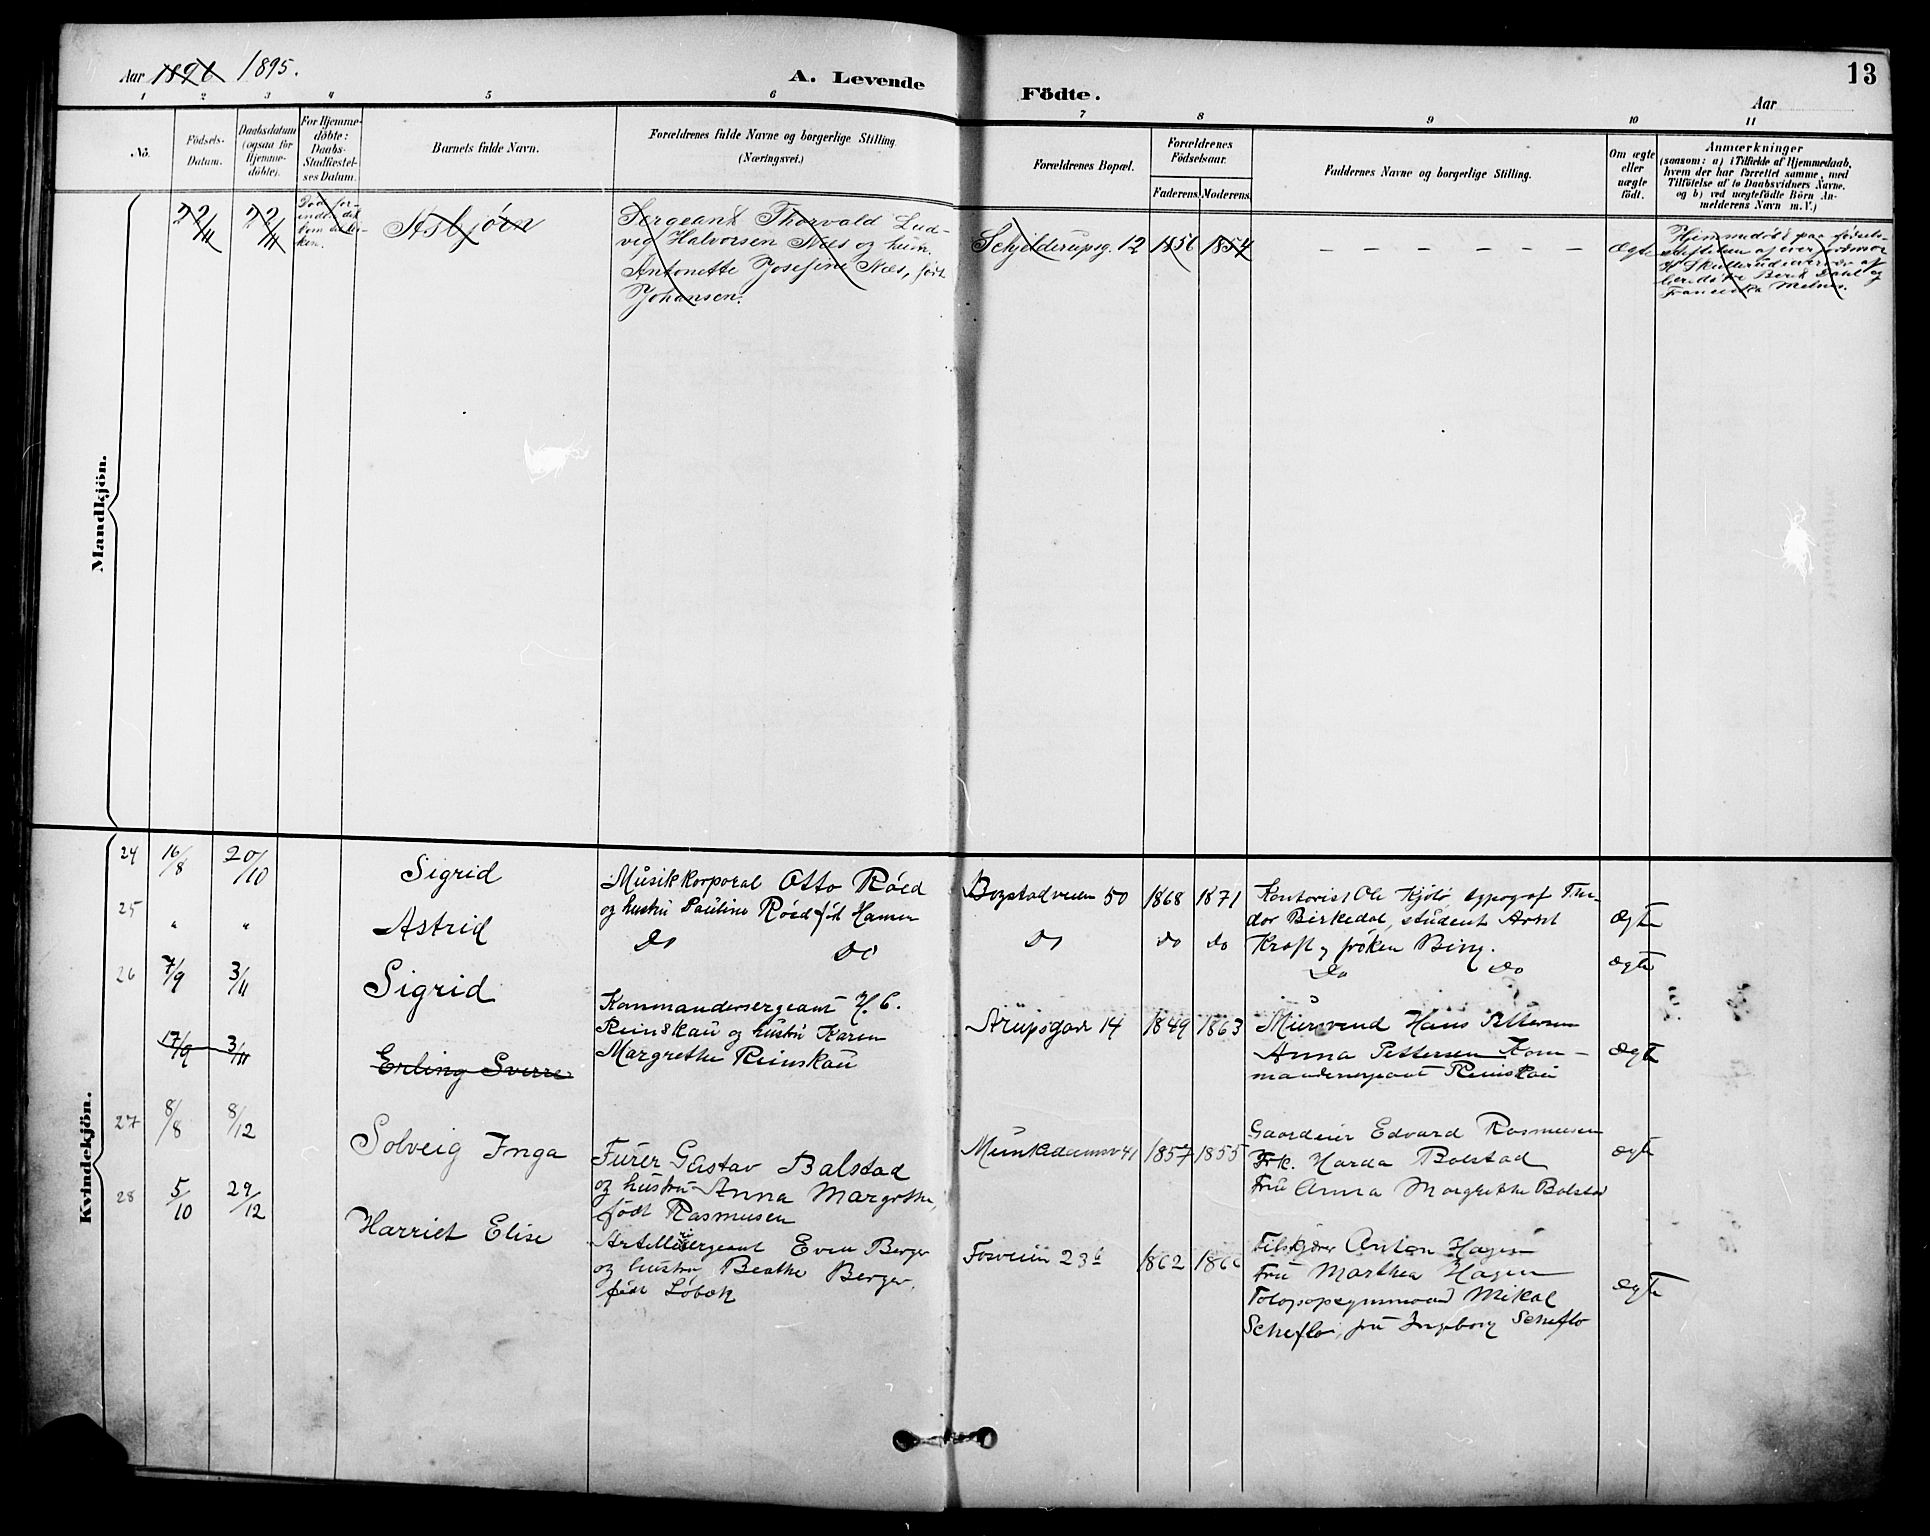 Aar 1896 1895.
A. Levende
Födte.
Aar
13
1 2 3 4 5 6 7 8 9 10 11
No.
Födsels-
Datum.
Daabsdatum
(ogsaa for
Hjemme-
döbte).
For Hjemme-
döbte:
Daabs-
Stadfæstel-
ses Datum.
Barnets fulde Navn.
Forældrenes fulde Navne og borgerlige Stilling
(Næringsvei.)
Forældrenes Bopæl.
Forældrenes
Födselsaar.
Faderens. Moderens.
Faddernes Navne og borgerlige Stilling.
Om ægte
eller
uægte
födt.
Anmærkninger
(saasom: a) i Tilfælde af Hjemmedaab,
hvem der har forrettet samme, med
Tilföielse af to Daabsvidners Navne,
og b) ved uægtefödte Börn An-
melderens Navn m. V.)
Mandkjön.
22/11
22/11
Død for-
inden det
kom til kir-
ken.
Asbjørn
Sergeant Thorvald Lud-
vig Halvorsen Næs og hun.
Antonette Josefine Næs, født
Johansen.
Schjelderupsg. 12
1856
1854
— — — — — — —
Ægte
Hjemmedøbt paa fødsels-
stiftelsen af
Kvindekjön.
24
16/8
20/10
Sigrid
Musikkorporal Otto Röed
og hustru Pauline Röed föd Hansen
Bogstadveien 50
1868
1871
Kontorist Ole Kjölö, typograf Theo-
dor Birkedal, student Arnt
Kraft, fröken Bing.
Ægte
25
"
"
Astrid
Do Do
Do
do
do
Do Do
Ægte
26
7/9
3/11
Sigrid
Kommandersergeant H. C.
Reinskau og hustru Karen
Margrethe Reinskau
Arupsgade 14
1849
1863
Mursvend Hans Pettersen
Anna Pettersen Kom-
mandersergeant Reinskau
Ægte
17/9
3/11
Erling Sverre
27
8/8
8/12
Solveig Inga
Furer Gustav Balstad
og hustru Anna Margrethe,
født Rasmusen
Munkedamsv 41
1857
1855
Gaardeier Edvard Rasmusen
Frk. Harda Bolstad
Fru Anna Margrethe Bolstad
Ægte
28
5/10
29/12
Harriet Elise
Artillisergeant Even Berger
og hustru Beathe Berger,
født Løbak
Fosveien 23 b
1862
Anton Hagen
Fru Marthea Hagen
Mikal
Scheflo, fru Ingeborg Scheflo
Ægte